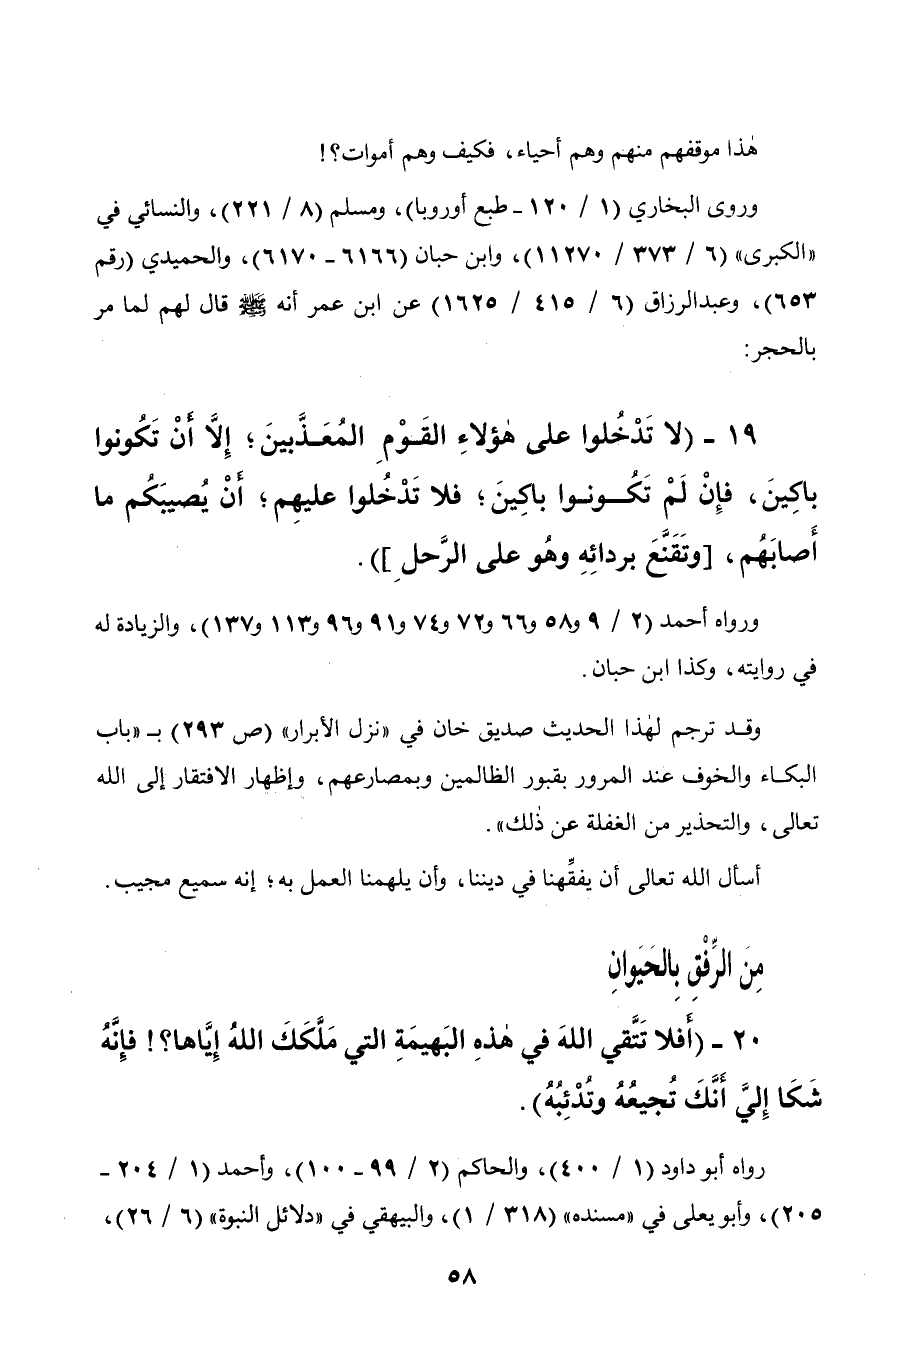 هٰذا موقفهم منهم وهم أحياء، فكيف وهم أموات؟!
وروى البخاري (١ / ١٢٠ ـ طبع أوروبا)، ومسلم (٨ / ٢٢١)، والنسائي في
«الكبرى» (٦ / ٣٧٣ / ١١٢٧٠)، وابن حبان (٦١٦٦ ـ ٦١٧٠)، والحميدي (رقم
٦٥٣)، وعبدالرزاق (٦ / ٤١٥ / ١٦٢٥) عن ابن عمر أنه ﷺ قال لهم لما مر
بالحجر:
١٩ ـ (لا تَدْخُلوا على هٰؤلاءِ القَـوْمِ المُعَـذَّبينَ؛ إِلَّا أَنْ تَكُونوا
باكِينَ، فإِنْ لَمْ تَكُــونـوا باكِينَ؛ فلا تَدْخُلوا عليهِم؛ أَنْ يُصيبَكُم ما
أَصابَهُم، [وتَقَنَّعَ بردائِهِ وهُو على الرَّحلِ]).
ورواه أحمد (٢ / ٩ و٥٨ و٦٦ و٧٢ و٧٤ و٩١ و٩٦ و١١٣ و١٣٧)، والزيادة له
في روايته، وكذا ابن حبان.
وقـد ترجم لهٰذا الحديث صديق خان في «نزل الأبرار» (ص ٢٩٣) بـ «باب
البكـاء والخوف عند المرور بقبور الظالمين وبمصارعهم، وإظهار الافتقار إلى الله
تعالى، والتحذير من الغفلة عن ذٰلك».
أسأل الله تعالى أن يفقِّهنا في ديننا، وأن يلهمنا العمل به؛ إنه سميع مجيب.
مِنَ الرِّفْقِ بِالحَيَوانِ
٢٠ ـ (أَفلا تَتَّقي اللهَ في هٰذهِ البَهيمَةِ التي مَلَّكَكَ اللهُ إِيَّاها؟! فإِنَّهُ
شَكَا إِليَّ أَنَّكَ تُجيعُهُ وتُدْئِبُهُ).
رواه أبو داود (١ / ٤٠٠)، والحاكم (٢ / ٩٩ ـ ١٠٠)، وأحمد (١ / ٢٠٤ ـ
٢٠٥)، وأبو يعلى في «مسنده» (٣١٨ / ١)، والبيهقي في «دلائل النبوة» (٦ / ٢٦)،
٥٨